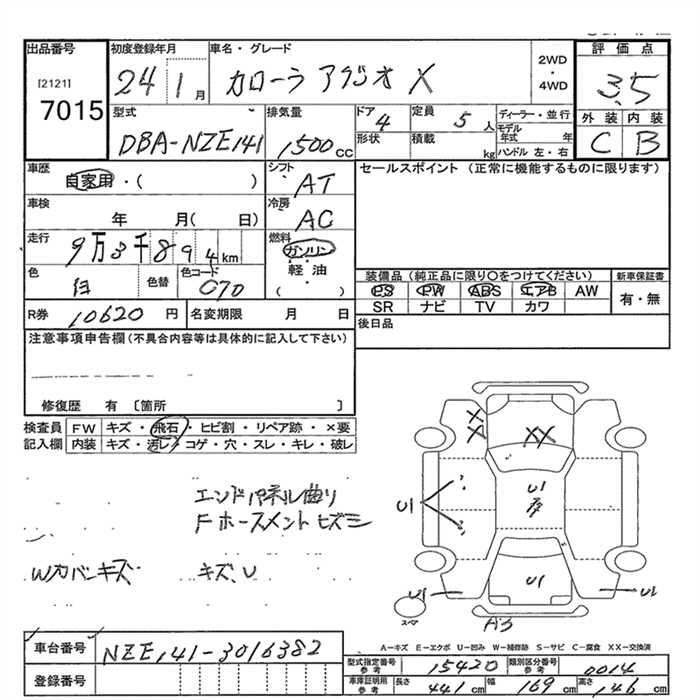 出品番号 初度登録年月 車名・グレード 2WD・4WD 評価点
[2121]
7015
24 1月 カローラ アクシオ X 3.5
型式 排気量 ドア 定員 ディーラー・並行 外装 内装
DBA-NZE141 1500cc 4 5人 モデル年式 年 C B
形状 積載 kg ハンドル 左・右
車歴 シフト セールスポイント (正常に機能するものに限ります)
自家用・( ) AT
車検 冷房
年 月( 日) AC
走行 燃料
9万3千894km ガソリン
色 色替 色コード 軽・油
白 070 ( )
装備品(純正品に限り○をつけてください) 新車保証書
PS PW ABS エアB AW 有・無
SR ナビ TV カワ
R券 10620円 名変期限 月 日 後日品
注意事項申告欄(不具合内容等は具体的に記入して下さい)
修復歴 有 〔箇所 〕
検査員 FW キズ・飛石・ヒビ割・リペア跡・×要
記入欄 内装 キズ・汚レ・コゲ・穴・スレ・キレ・破レ
エンドパネル曲り
Fホースメントヒズミ
Wカバンキズ キズ、U
X
X
XX
U1
U1
U1
U1
U1
スペア
車台番号 NZE141-3016382
登録番号
A-キズ E-エクボ U-凹み W-補修跡 S-サビ C-腐食 XX-交換済
型式指定番号 参考 15420 類別区分番号 参考 0014
車庫証明用 参考 長さ 441cm 幅 169cm 高さ 146cm